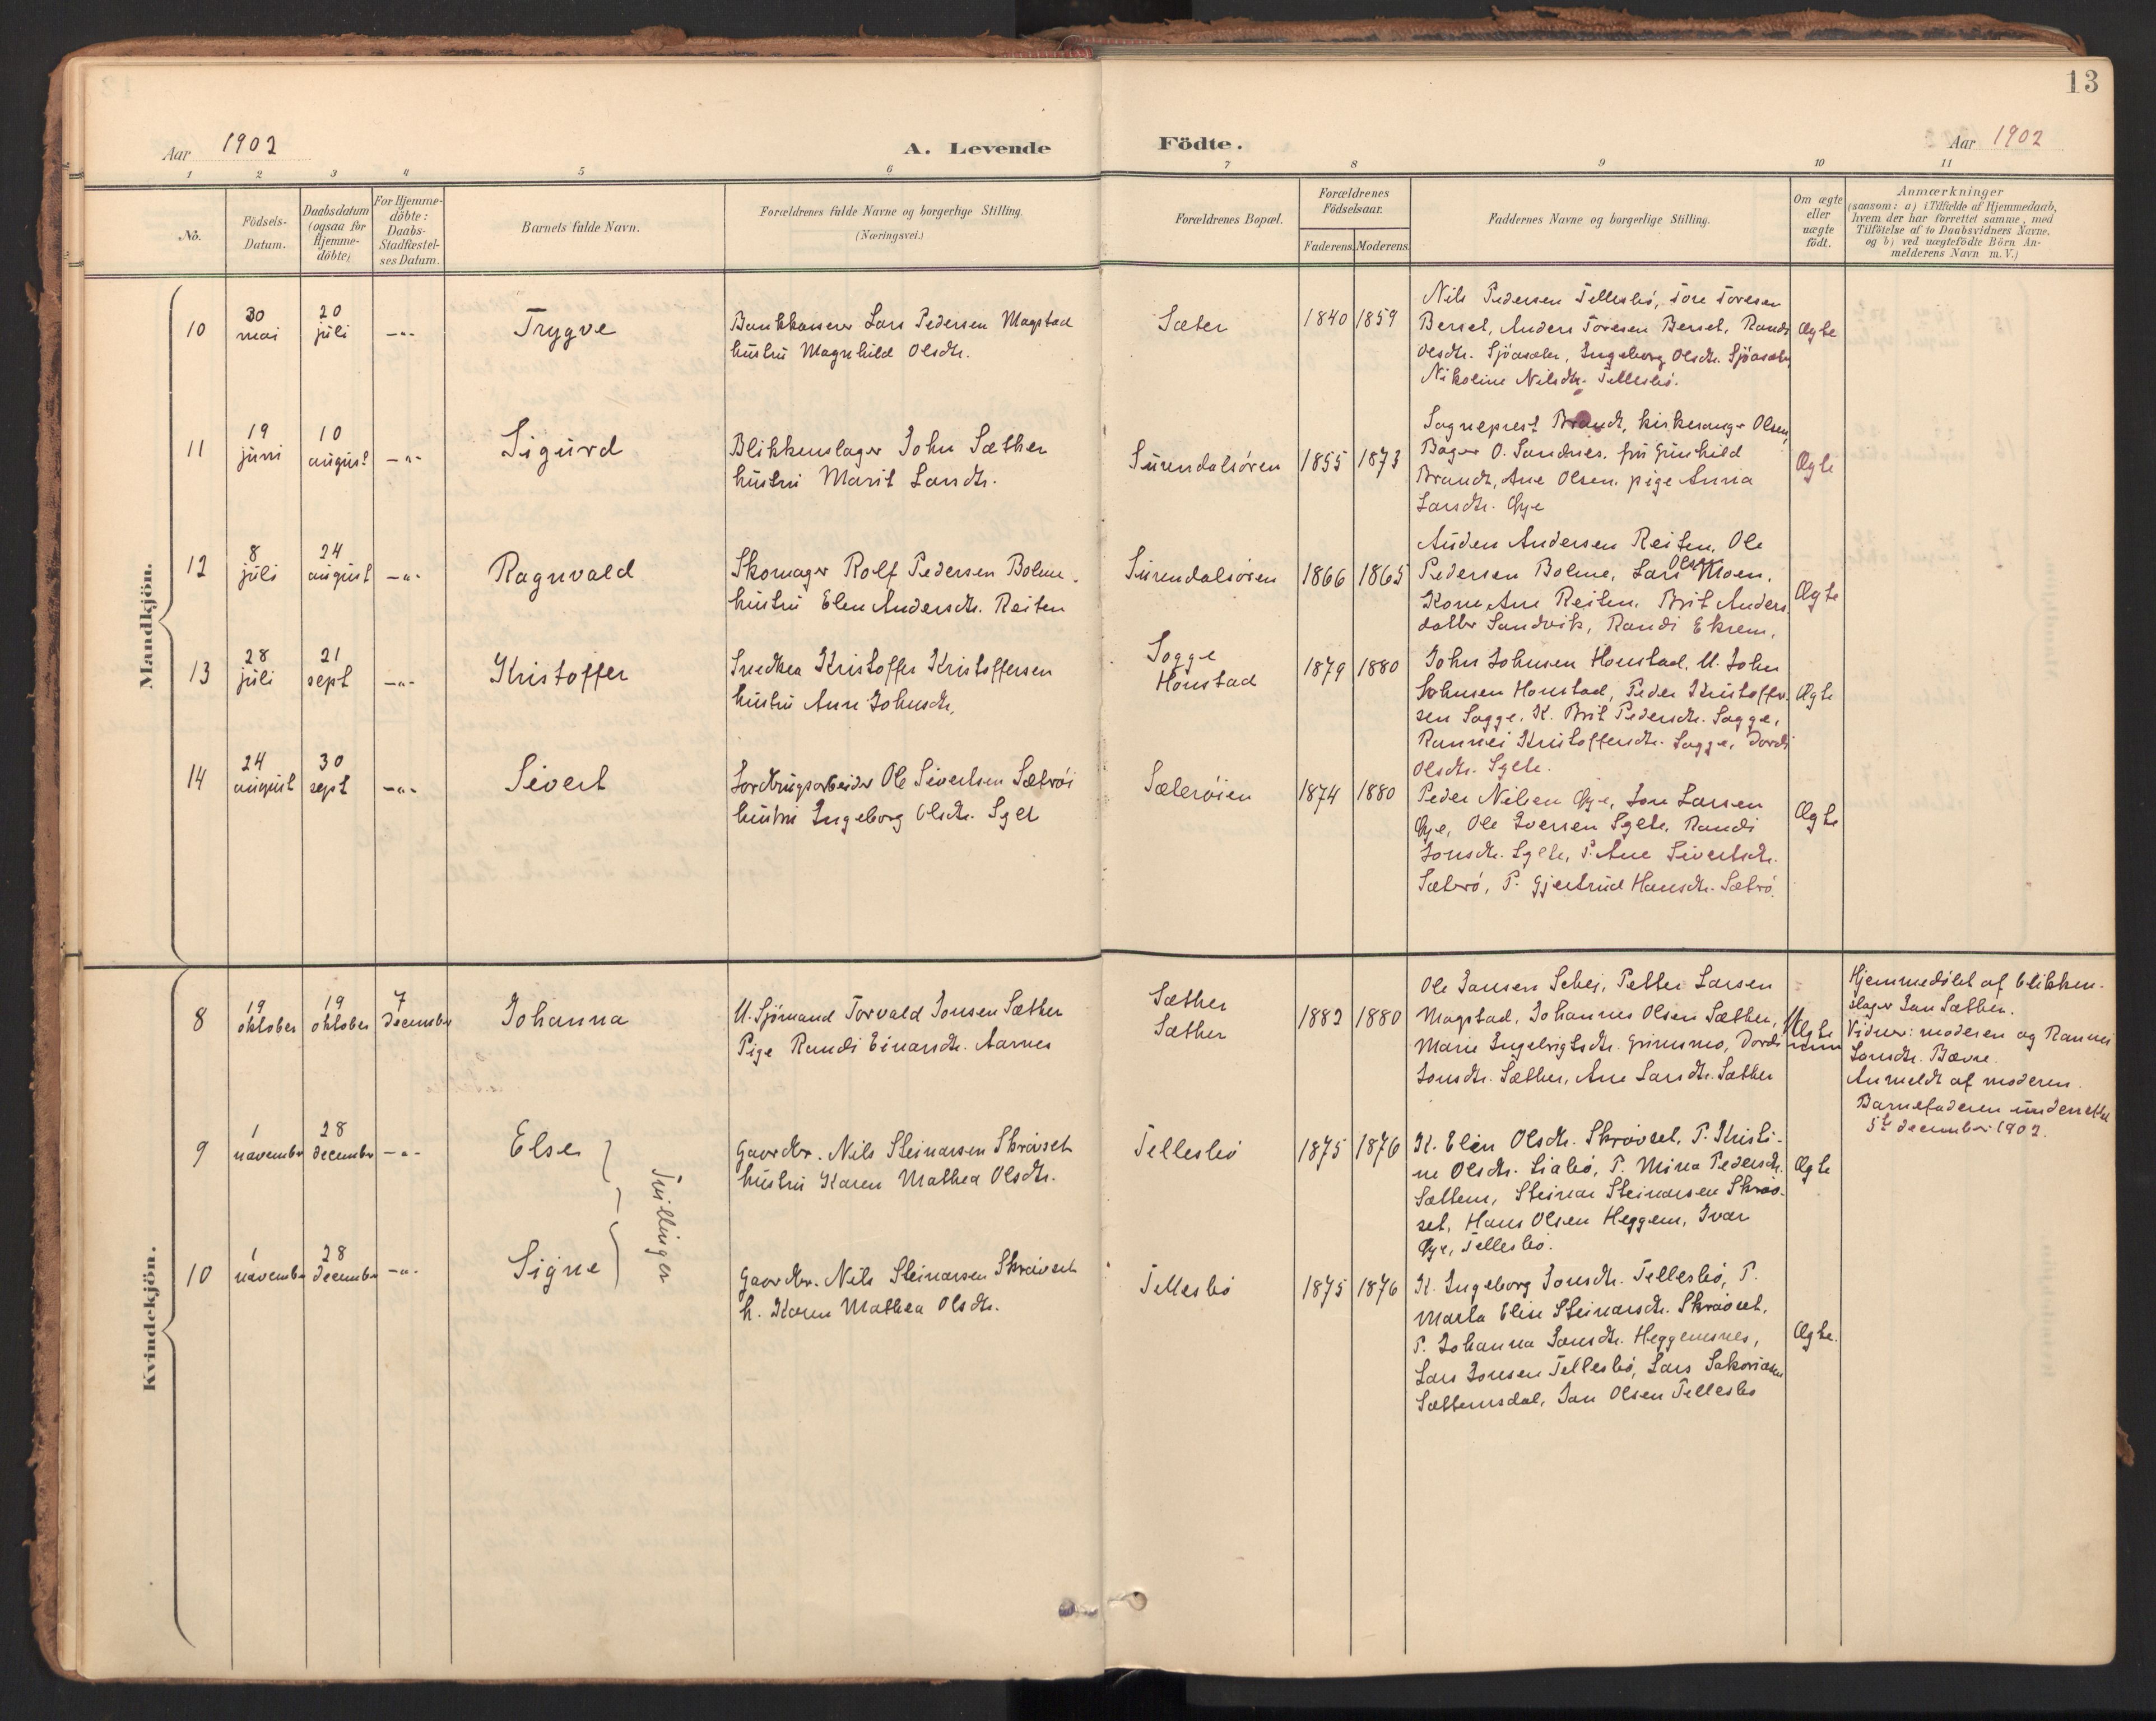 13
Aar 1902
A. Levende
Födte.
Aar 1902
1 2 3 4 5 6 7 8 9 10 11
No.
Födsels-
Datum.
Daabsdatum
(ogsaa for
Hjemme-
döbte)
For Hjemme-
döbte:
Daabs-
Stadfæstel-
ses Datum.
Barnets fulde Navn.
Forældrenes fulde Navne og borgerlige Stilling.
(Næringsvei.)
Forældrenes Bopæl.
Forældrenes
Födselsaar.
Faderens. Moderens.
Faddernes Navne og borgerlige Stilling.
Om ægte
eller
uægte
födt.
Anmærkninger
(saasom: a) i Tilfælde af Hjemmedaab,
hvem der har forrettet samme, med
Tilföielse af to Daabsvidners Navne.
og b) ved uægtefödte Börn An-
melderens Navn m.V.)
Mandkjön.
10
30
mai
20
juli
-"-
Trygve
Bankkasserer Lars Pedersen Magstad
hustru Magnhild Olsdtr.
Sæter
1840 1859
Nils Pedersen Tellesbö, Tore Toresen
Berset, Anders Toresen Berset, Randi
Olsdtr. Sjöasæter, Ingeborg Olsdtr. Sjöasæter,
Nikoline Nilsdtr. Tellesbö.
Ægte
11
19
juni
10
august
-"-
Sigurd
Blikkenslager John Sæther
hustru Marit Larsdtr.
Surendalsören
1855 1873
Sogneprest Brandt, kirkesanger Olsen,
Bager O. Sandnes, fru Gunhild
Brandt, Ane Olsen, pige Anna
Larsdtr. Öye
Ægte
12
8
juli
24
august
-"-
Ragnvald
Skomager Rolf Pedersen Bolme.
hustru Elen Andersdtr. Reiten
Surendalsören
1866 1865
Auden Andersen Reiten, Ole
Pedersen Bolme, Lars Olsen Moen,
Kone Ane Reiten, Brit Anders
datter Sandvik, Randi Ekrem,
Ægte
13
28
juli
21
sept
-"-
Kristoffer
Snedker Kristoffer Kristoffersen
hustru Ane Johnsdtr.
Sogge
Honstad
1879 1880
John Johnsen Honstad, U. John
Johnsen Honstad, Peder Kristoffer-
sen Sogge, K. Brit Pedersdtr. Sogge,
Rannei Kristoffersdtr. Sogge, Dordi
Olsdtr. Sgete.
Ægte
14
24
august
30
sept
-"-
Sivert
Ole Sivertsen Sæterö
hustru Ingeborg Olsdtr. Sget
Sæteröien
1874 1880
Peder Nilsen Öye, Jon Larsen
Öye, Ole Iversen Sgete, Randi
Jonsdtr. Sgete, P. Ane Sivertsdtr.
Sæterö, P. Gjertrud Hansdtr. Sæterö.
Ægte
Kvindekjön.
8
19
oktober
19
oktober
7
december
Johanna
U. Sjömand Torvald Jonsen Sæther
Pige Randi Einarsdtr. Aarnes
Sæther
Sæther
1882 1880
Ole Jansen Schei, Petter Larsen
Magstad, Johannes Olsen Sæther,
Marie Ingebrigtsdtr. Grimsmo, Dordi
Jonsdtr. Sæther, Ane Larsdtr. Sæther
Uægte
Hjemmedöbt af blikken-
slager Jan Sæther.
Vidner: moderen og Rannei
Larsdtr. Bævre.
Anmeldt af moderen.
Barnefaderen underrettet
5te december 1902.
9
1
november
28
december
-"-
Else
Tvillinger
Gaardbr. Nils Steinarsen Skravset
hustru Karen Mathea Olsdtr.
Tellesbö
1875 1876
K. Elen Olsdtr. Skravset, P. Kristi-
ne Olsdtr. Liabö, P. Mina Pedersdtr.
Sættem, Steinar Steinarsen Skrav-
set, Hans Olsen Heggem, Ivar
Öye, Tellesbö.
Ægte
10
1
november
28
december
-"-
Signe
Gaardbr. Nils Steinarsen Skravset
h. Karen Mathea Olsdtr.
Tellesbö
1875 1876
K. Ingeborg Jonsdtr. Tellesbö, P.
Marta Elise Steinarsdtr. Skravset,
P. Johanna Jonsdtr. Heggemsnes,
Lars Jonsen Tellesbö, Lars Sakariasen
Sættemsdal, Jan Olsen Tellesbö
Ægte.